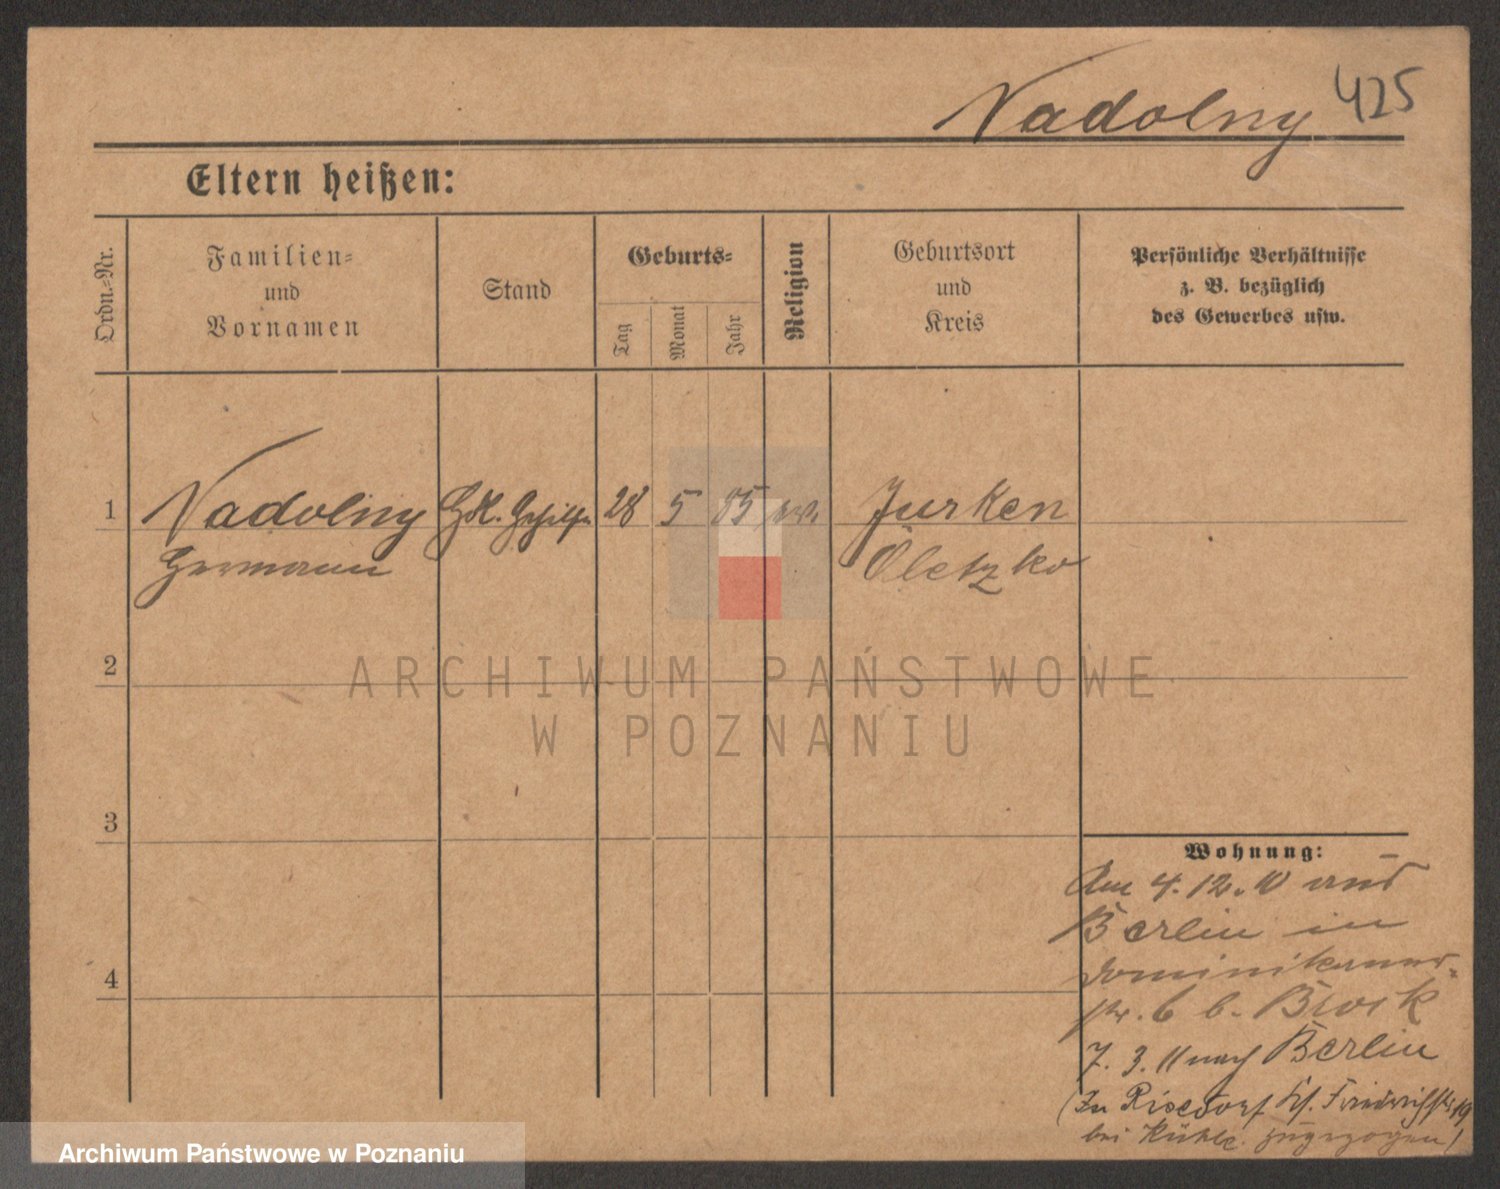 Nadolny 425
Eltern heißen:
Ordn.-Nr.
Familien-
und
Vornamen
Stand
Geburts-
Tag
Monat
Jahr
Religion
Geburtsort
und
Kreis
Persönliche Verhältnisse
z. B. bezüglich
des Gewerbes usw.
1 Nadolny Hdl. Gehilfe 28 5 85 ev. Jurken
Hermann Oletzko
2
3
4
Wohnung:
Am 4. 12. 10 aus
Berlin in
Dominikaner-
str. 6 b. Brock
7. 3. 11 nach Berlin
(In Rixdorf Friedrichstr. 19
bei zugezogen)
ARCHIWUM PAŃSTWOWE
W POZNANIU
Archiwum Państwowe w Poznaniu